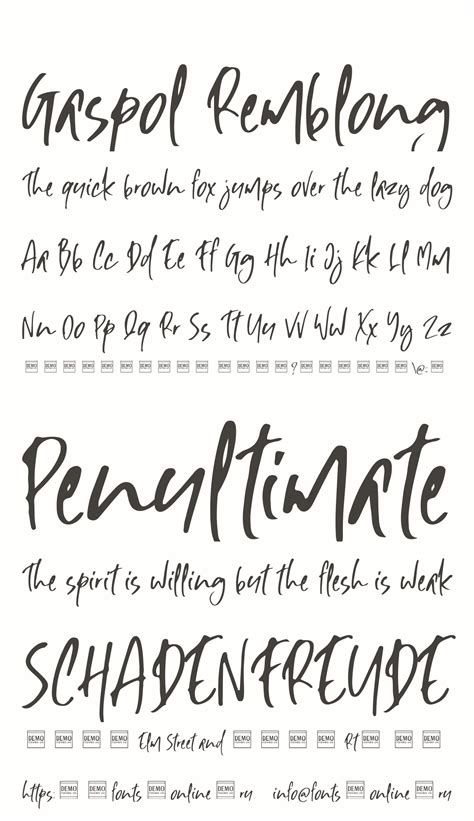 Gaspol Remblong
The quick brown fox jumps over the lazy dog
Aa Bb Cc Dd Ee Ff Gg Hh Ii Jj Kk Ll Mm
Nn Oo Pp Qq Rr Ss Tt Uu Vv Ww Xx Yy Zz
DEMO DEMO DEMO DEMO DEMO DEMO DEMO DEMO DEMO DEMO DEMO DEMO DEMO DEMO ? DEMO DEMO DEMO DEMO DEMO DEMO \@: DEMO
Penultimate
The spirit is willing but the flesh is weak
SCHADENFREUDE
DEMO DEMO DEMO DEMO Elm Street and DEMO DEMO DEMO DEMO Rt DEMO DEMO
https: DEMO DEMO fonts DEMO online DEMO ru info@fonts DEMO online DEMO ru